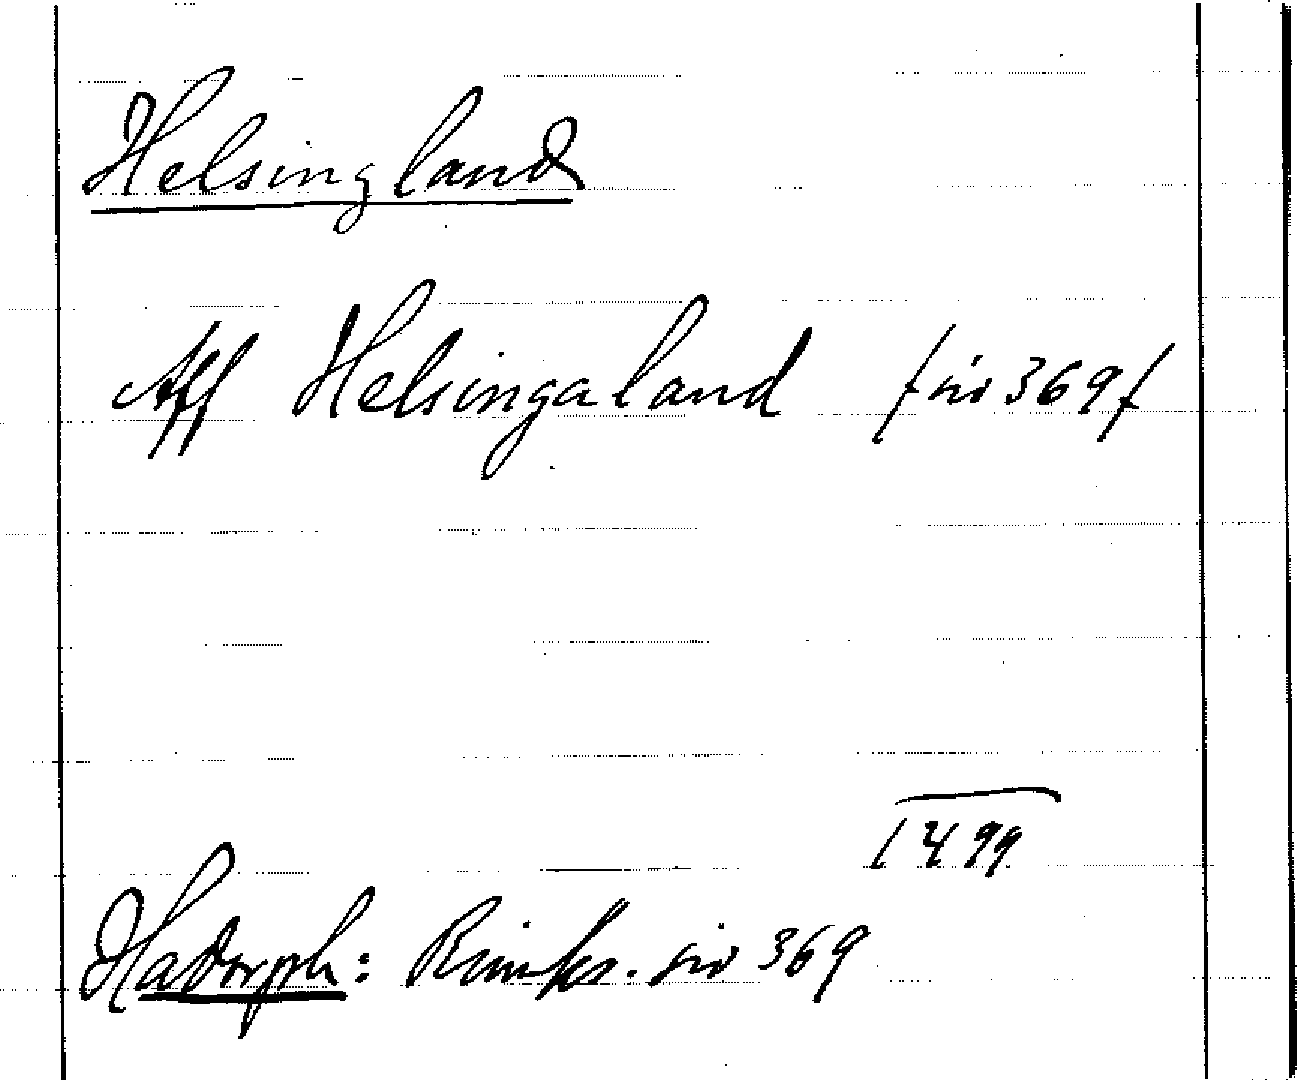 Helsingland
Aff Helsingaland /sid 369/
1499
Hadorph: Rimkr. sid 369